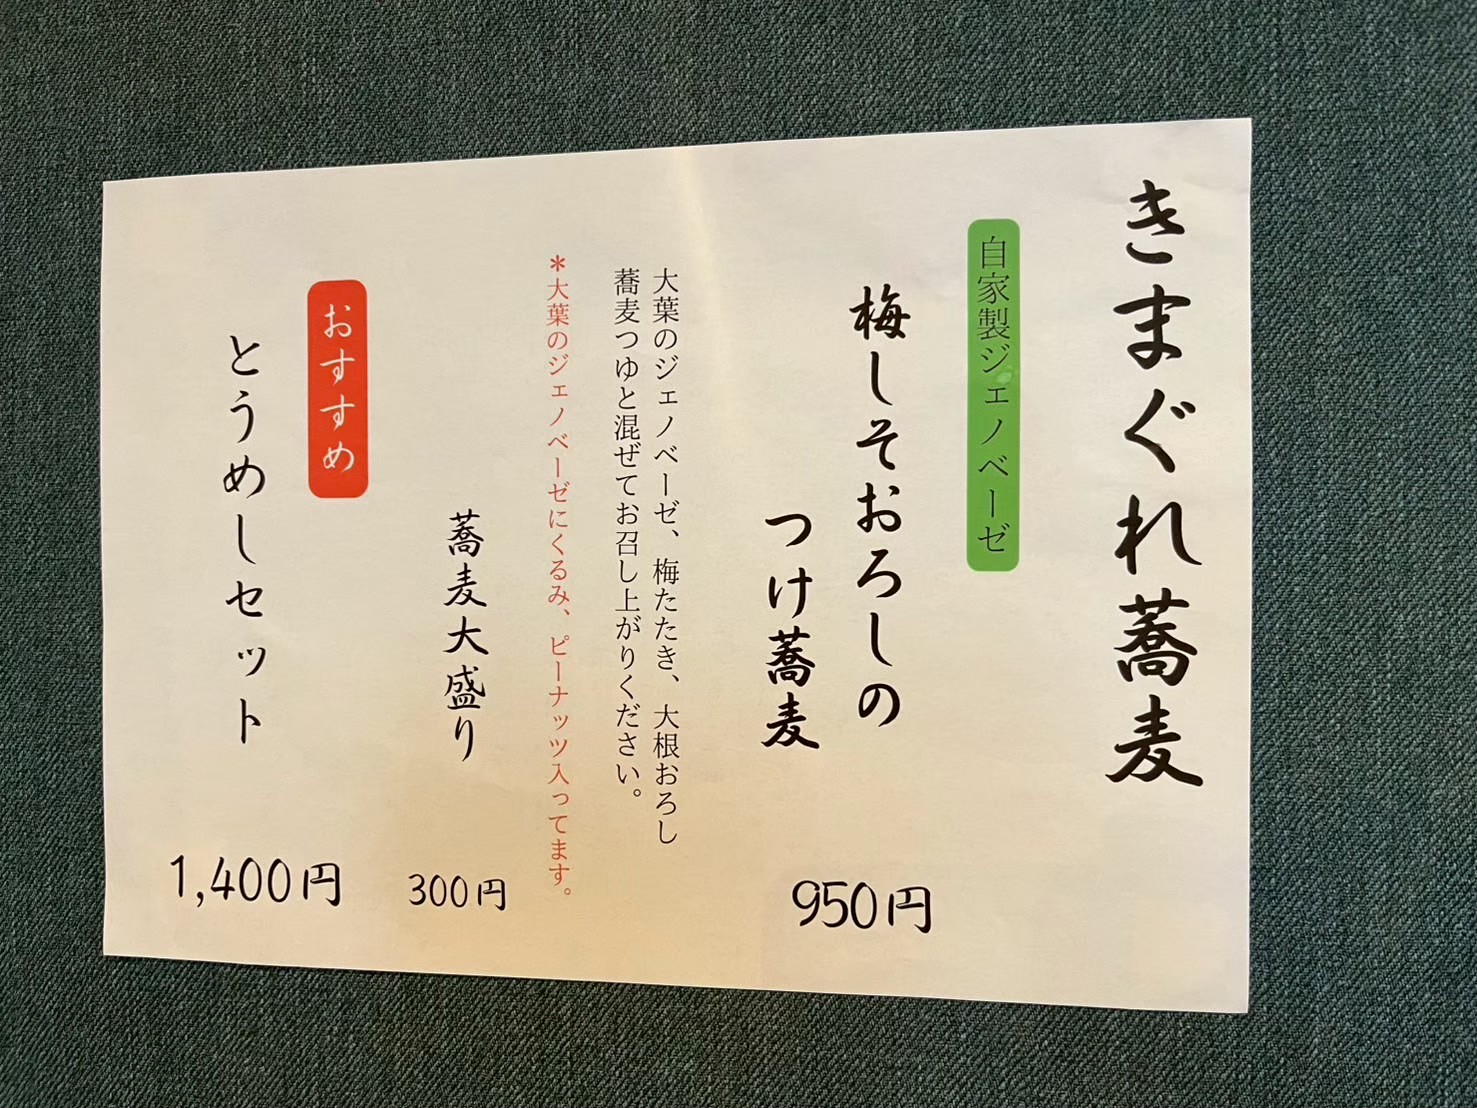 きまぐれ蕎麦
自家製ジェノベーゼ
梅しそおろしの
つけ蕎麦
950円
大葉のジェノベーゼ、梅たたき、大根おろし
蕎麦つゆと混ぜてお召し上がりください。
＊大葉のジェノベーゼにくるみ、ピーナッツ入ってます。
蕎麦大盛り
300円
おすすめ
とうめしセット
1,400円